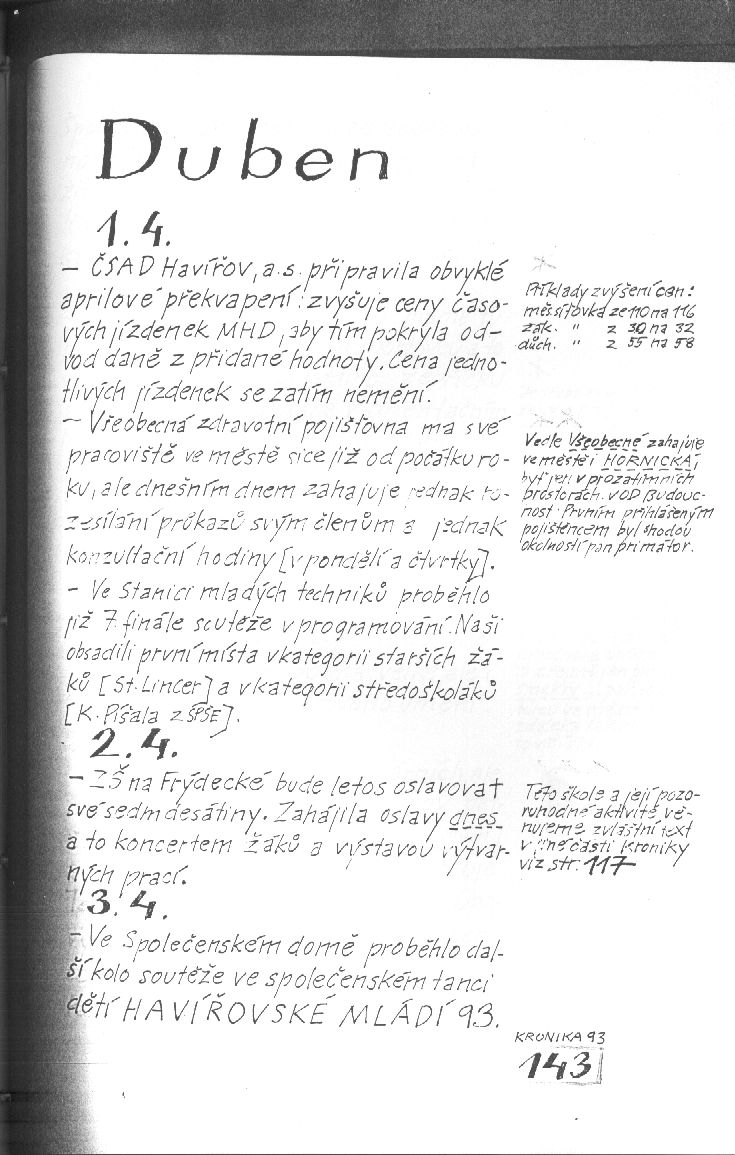 Duben
1.4.
– ČSAD Havířov, a.s. připravila obvyklé
aprílové překvapení: zvyšuje ceny časo-
vých jízdenek MHD, aby tím pokryla od-
vod daně z přidané hodnoty. Cena jedno-
tlivých jízdenek se zatím nemění.
Příklady zvýšení cen:
měsíťovka ze 110 na 116
žák. " z 30 na 32
důch. " z 55 na 58
– Všeobecná zdravotní pojišťovna má své
pracoviště ve městě sice již od počátku ro-
ku, ale dnešním dnem zahajuje jednak ro-
zesílání průkazů svým členům a jednak
konzultační hodiny [v pondělí a čtvrtky].
Vedle Všeobecné zahajuje
ve městě i HORNICKÁ,
byť jen v prozatímních
prostorách v OD Budouc-
nost. Prvním přihlášeným
pojištěncem byl shodou
okolností pan primátor.
– Ve Stanici mladých techniků proběhlo
již 7. finále soutěže v programování. Naši
obsadili první místa v kategorii starších žá-
ků [St. Lincer] a v kategorii středoškoláků
[K. Píšala z SPŠE].
2.4.
– ZŠ na Frýdecké bude letos oslavovat
své sedmdesátiny. Zahájila oslavy dnes
a to koncertem žáků a výstavou výtvar-
ných prací.
Této škole a její pozo-
ruhodné aktivitě, vě-
nujeme zvláštní text
v jiné části Kroniky
viz str. 117
3.4.
– Ve Společenském domě proběhlo dal-
ší kolo soutěže ve společenském tanci
dětí HAVÍŘOVSKÉ MLÁDÍ 93.
KRONIKA 93
143